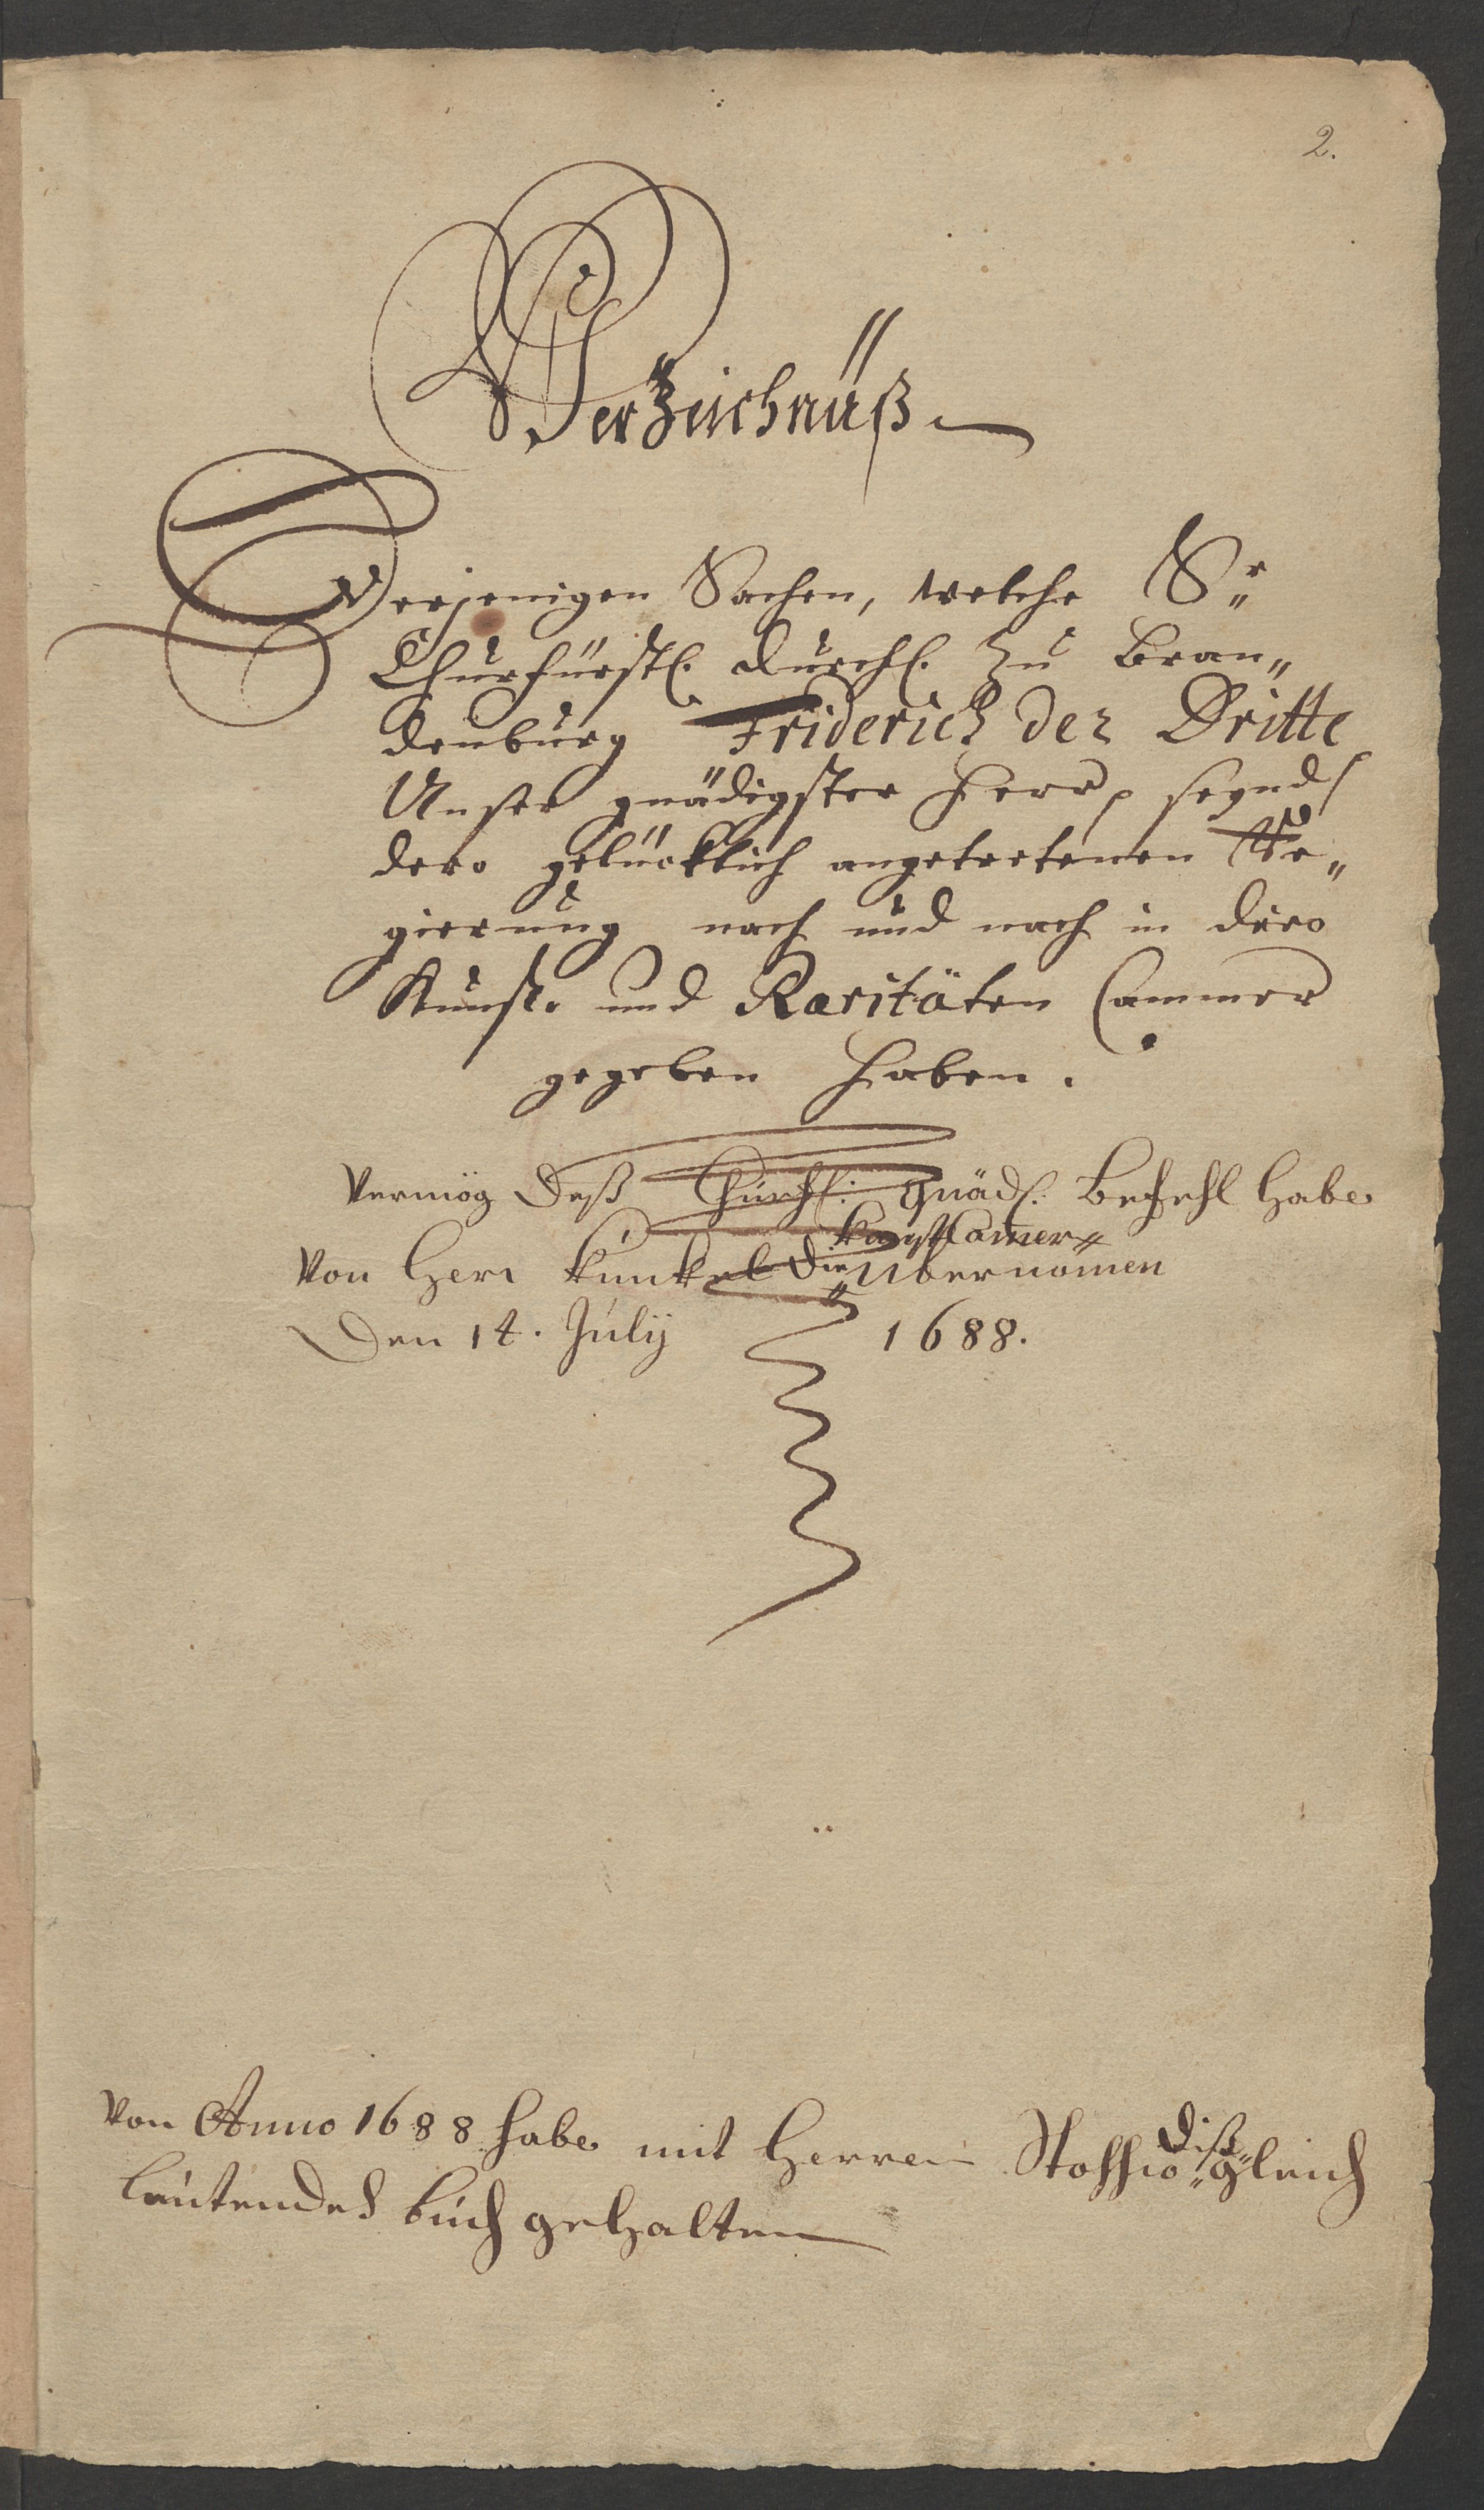 2.
Verzeichnüß
Derjenigen Sachen, welche Sr
Churfürstl. Durchl. zu Bran„
denburg Friderich der Dritte
Unser gnädigster Herr, seynd
dero gelücklich angetretenen Re„
gierung nach und nach in dero
Kunst- und Raritäten Cammer
gegeben haben.
Vermög deß Churfl: gnädl: Befehl habe
Kunstkamer
von Herr Kunkel die übernomen
den 14. July 1688.
diß
Von Anno 1688 habe mit Herren Stoschio gleich
lautendes buch gehalten